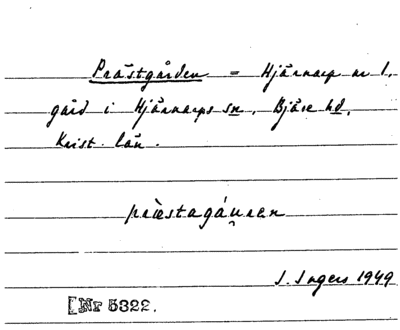 Prästgården = Hjärnarp nr 1.
gård i Hjärnarps sn, Bjäre hd,
Krist. län.
præ̀stagáu̯ren
I. Ingers 1949
[Nr 5322.